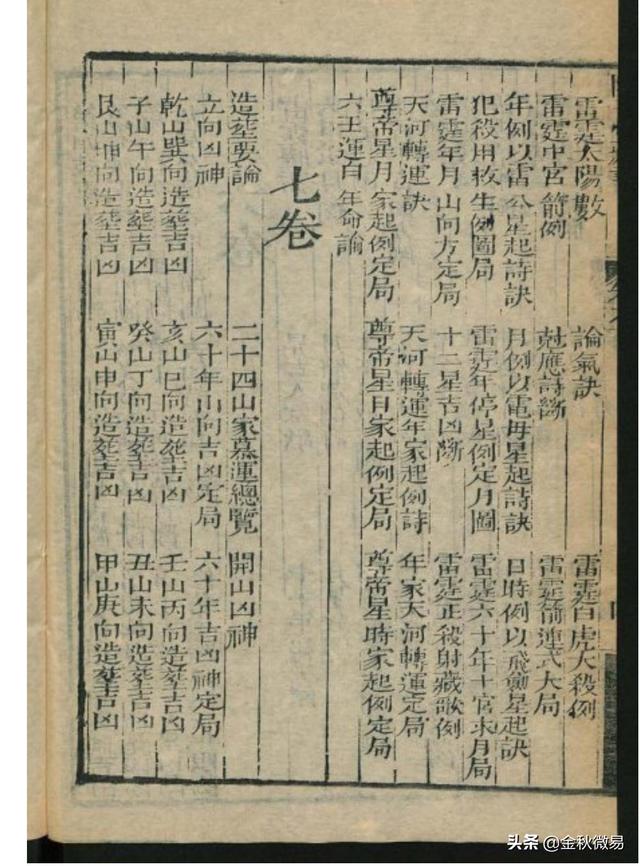 雷霆太陽數 論氣訣 雷霆白虎大殺例
雷霆中宮箭例 尅應詩斷 雷霆箭連式大局
年例以雷公星起詩訣 月例以電母星起詩訣 日時例以飛愈星起訣
犯殺用救生例圖局 雷霆年停星例定月圖 雷霆六十年十官求月局
雷霆年月山向方定局 十二星吉凶斷 雷霆正殺射藏歌例
天河轉運訣 天河轉運年家起例詩 年家天河轉運定局
尊帝星月家起例定局 尊帝星日家起例定局 尊帝星時家起例定局
六壬運白年命論
七卷
造塟要論 二十四山家慕運總覽 開山凶神
立向凶神 六十年山向吉凶定局 六十年吉凶神定局
乾山巽向造塟吉凶 亥山巳向造塟吉凶 壬山丙向造塟吉凶
子山午向造塟吉凶 癸山丁向造塟吉凶 丑山未向造塟吉凶
艮山坤向造塟吉凶 寅山申向造塟吉凶 甲山庚向造塟吉凶
头条 @金秋微易